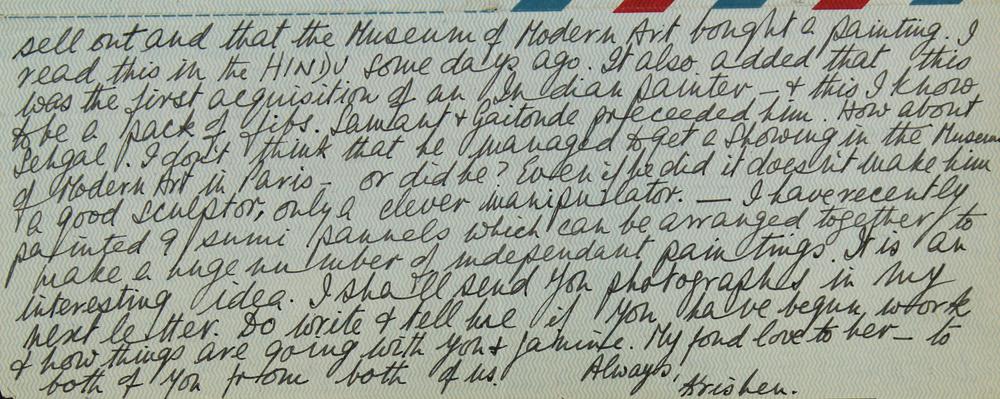 sell out and that the Museum of Modern Art bought a painting. I
read this in the HINDU some days ago. It also added that this
was the first acquisition of an Indian painter — & this I know
to be a pack of fibs. Samant & Gaitonde preceeded him. How about
Sehgal. I don't think that he managed to get a showing in the Museum
of Modern Art in Paris - or did he? Even if he did it doesn't make him
a good sculptor, only a clever manipulator. — I have recently
painted 9 sumi pannels which can be arranged together to
make a huge number of independant paintings. It is an
interesting idea. I shall send you photographs in my
next letter. Do write & tell me if you have begun work
& how things are going with you & Jamine. My fond love to her — to
both of you from both of us.
Always,
Krishen.